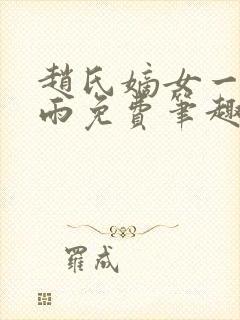 趙氏嫡女一
雨免費筆趣
羅成